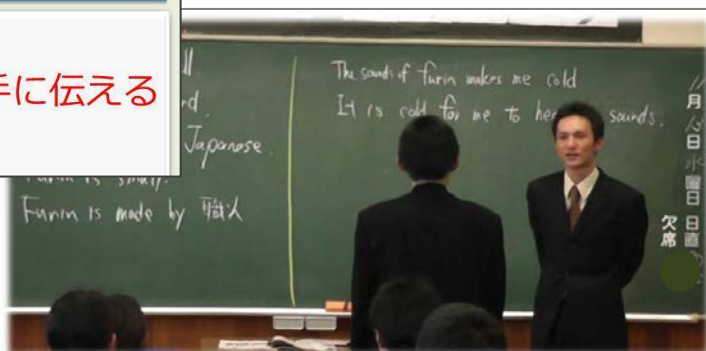 手に伝える
ll
rd.
Japanese.
Furin is small.
Furin is made by 職人
The sounds of furin makes me cold
It is cold for me to he sounds.
11
月
日
水
曜日
日直
欠席